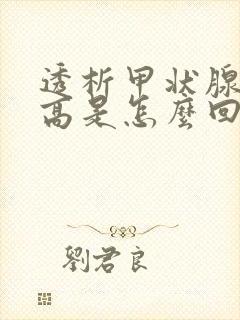 透析甲状腺
高是怎麼回
劉君良